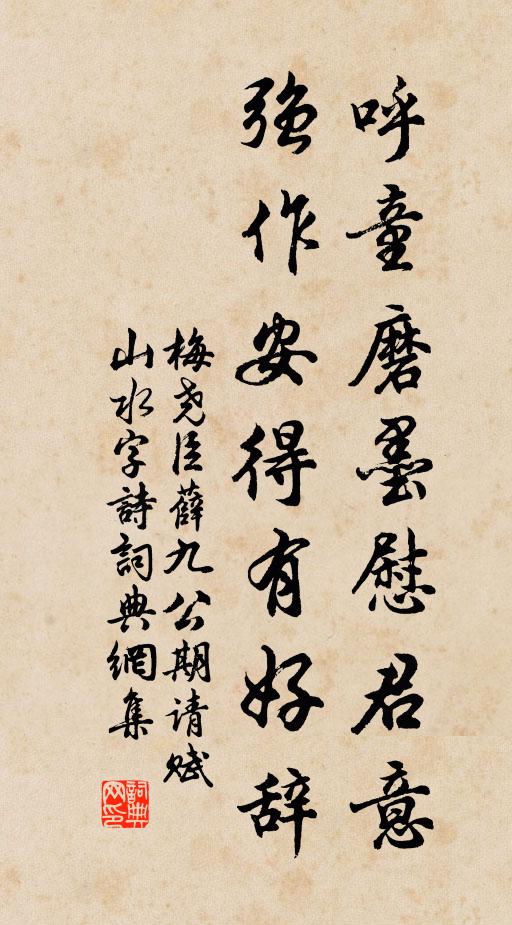 呼童磨墨慰君意
強作安得有好辞
梅堯臣薛九公期请赋
山水字詩詞典網集
詞典网印